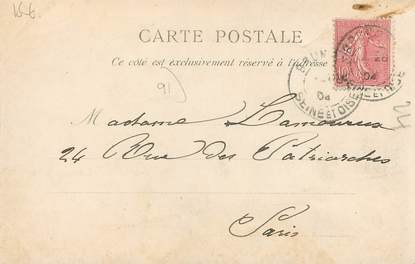 CARTE POSTALE
Ce côté est exclusivement réservé à l'adresse
91
Madame Lamoureux
24 Rue des Patriarches
Paris
04
SEINE ET OISE
04
SEINE ET OISE
24